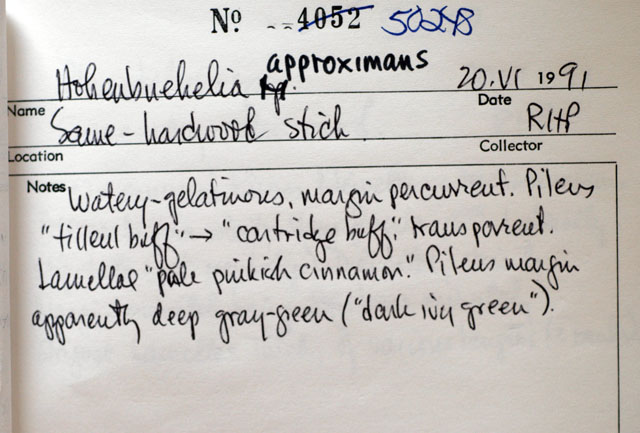 Nº --4052 50248
Hohenbuehelia sp. approximans 20.VI 1991
Name Date
Same - hardwood stick RHP
Location Collector
Notes Watery-gelatinous, margin percurrent. Pileus
"tilleul buff" → "cartridge buff," transparent.
Lamellae "pale pinkish cinnamon." Pileus margin
apparently deep gray-green ("dark ivy green").